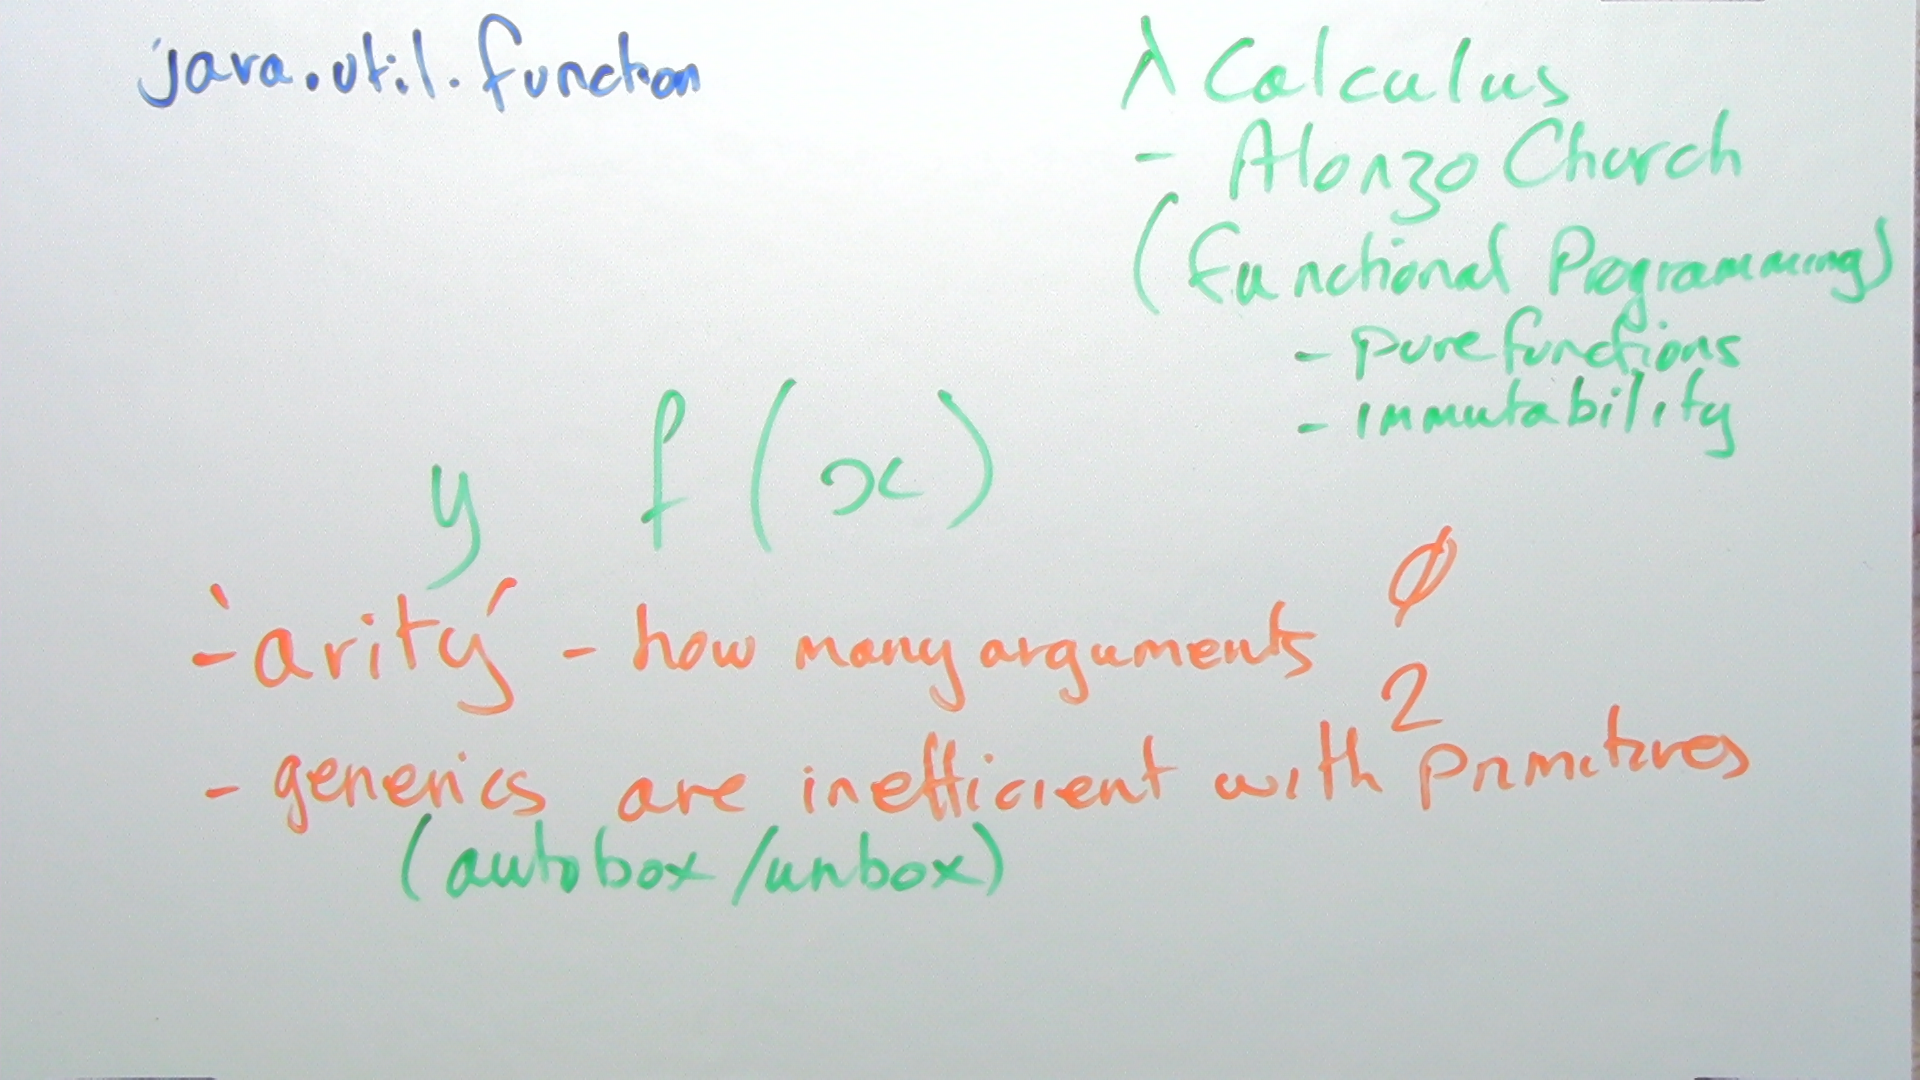 java.util.function
λ Calculus
- Alonzo Church
(Functional Programming)
- pure functions
- immutability
y f(x)
- 'arity' - how many arguments
Ø
2
- generics are inefficient with primitives
(autobox/unbox)